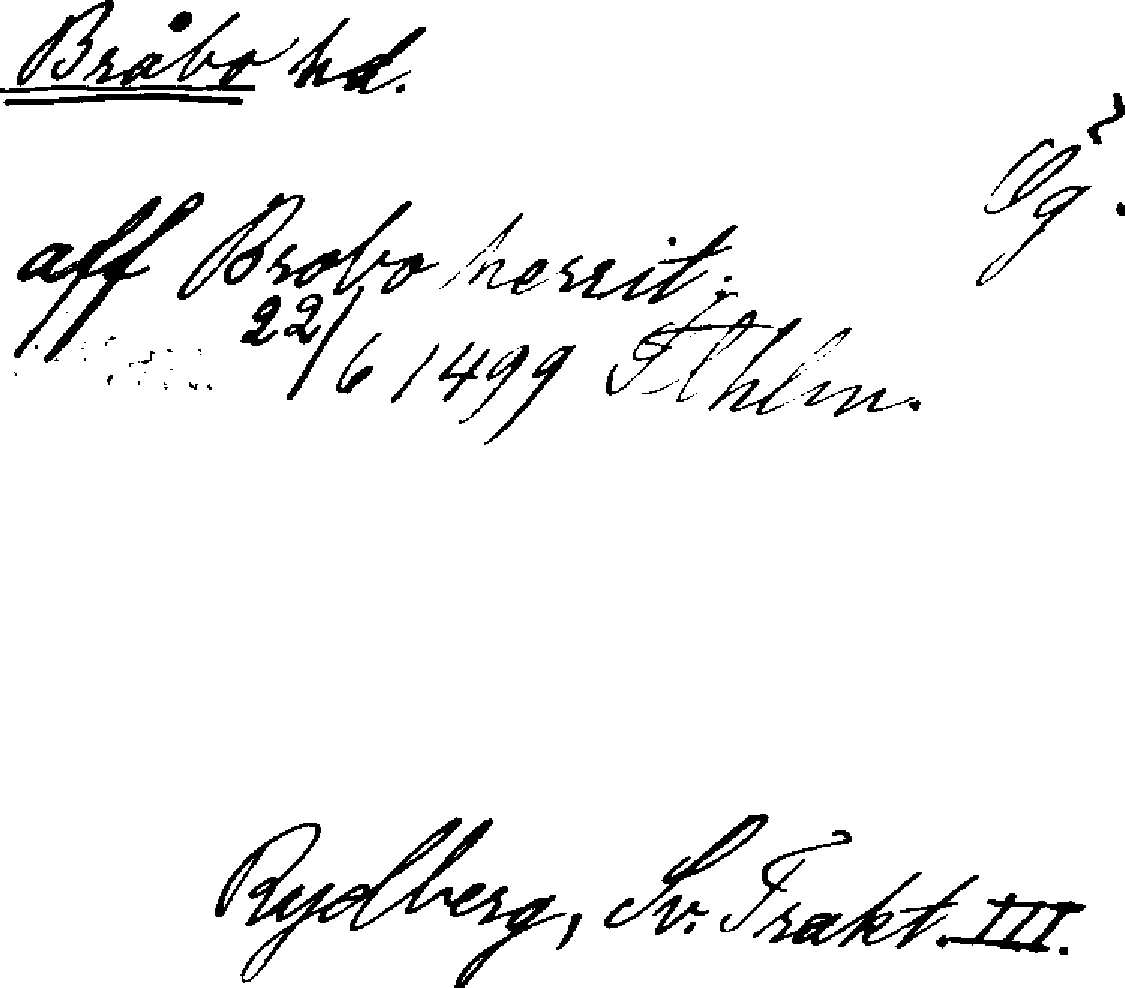 Bråbo hd.
Ög.
aff Brobo herrit;
22/6 1499 Sthlm.
Rydberg, Sv. Trakt. III.